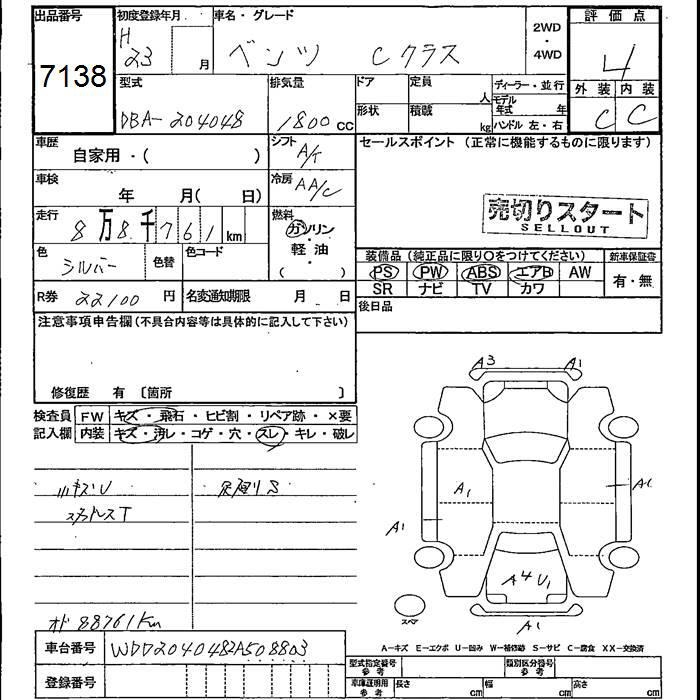 出品番号 初度登録年月 車名・グレード 評価点
7138 H 23 月 ベンツ Cクラス 2WD・4WD 4
型式 排気量 ドア 定員 人 ディーラー・並行 外装 内装
DBA-204048 1800 CC 形状 積載 kg モデル年式 年 ハンドル 左・右 C C
車歴 自家用・( ) シフト A/T セールスポイント (正常に機能するものに限ります)
車検 年 月( 日) 冷房 AA/C
売切りスタート
SELLOUT
走行 8万8千761km 燃料 ガソリン・軽油( )
色 シルバー 色替 色コード
装備品(純正品に限り○をつけてください) 新車保証書
PS PW ABS エアB AW 有・無
SR ナビ TV カワ
R券 22100 円 名変通知期限 月 日 後日品
注意事項申告欄(不具合内容等は具体的に記入して下さい)
修復歴 有 〔箇所 〕
検査員 FW キズ・飛石・ヒビ割・リペア跡・×要
記入欄 内装 キズ・汚レ・コゲ・穴・スレ・キレ・破レ
A3 A1
小キズU 足廻りS
スタッドレスT
A1 A1
A1
A4 U1
スペア A1
オド 88761Km
A-キズ E-エクボ U-凹み W-補修跡 S-サビ C-腐食 XX-交換済
車台番号 WDD2040482A508803
登録番号
型式指定番号 参考 類別区分番号 参考
車庫証明用 参考 長さ cm 幅 cm 高さ cm